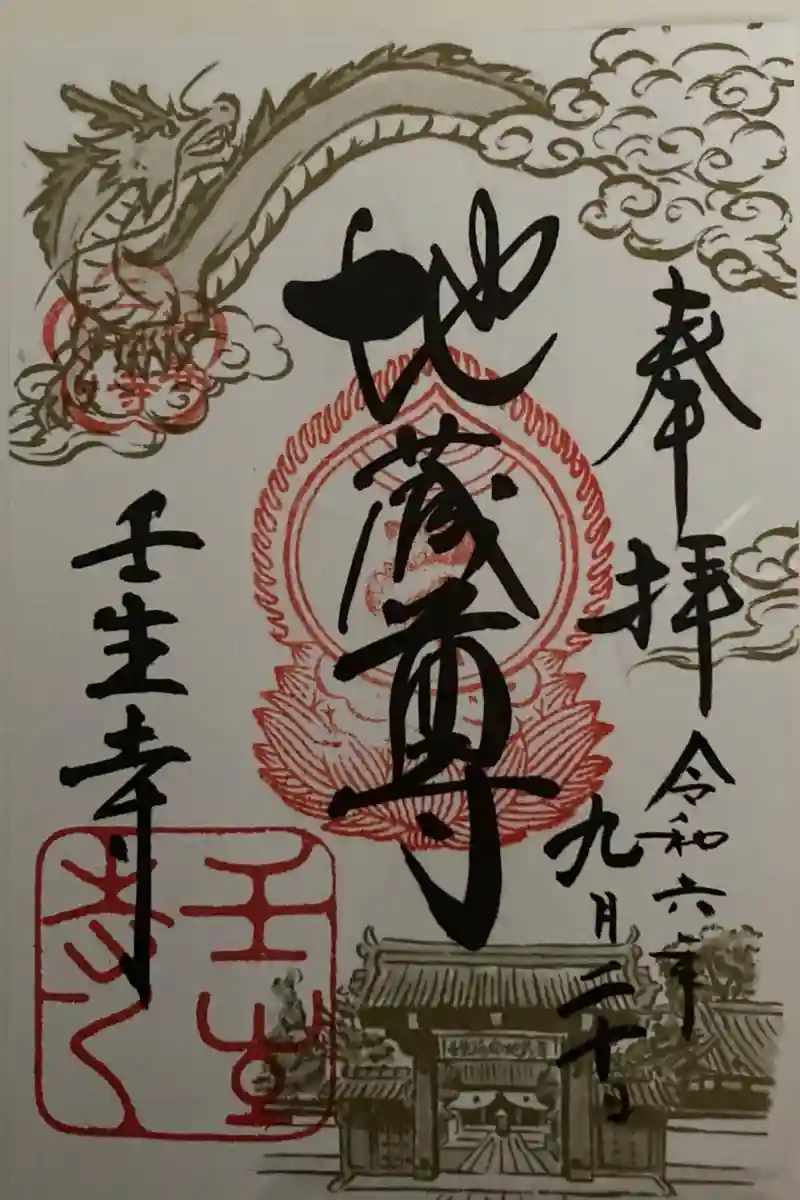 奉拝
令和六年
九月二十日
地蔵尊
壬生寺